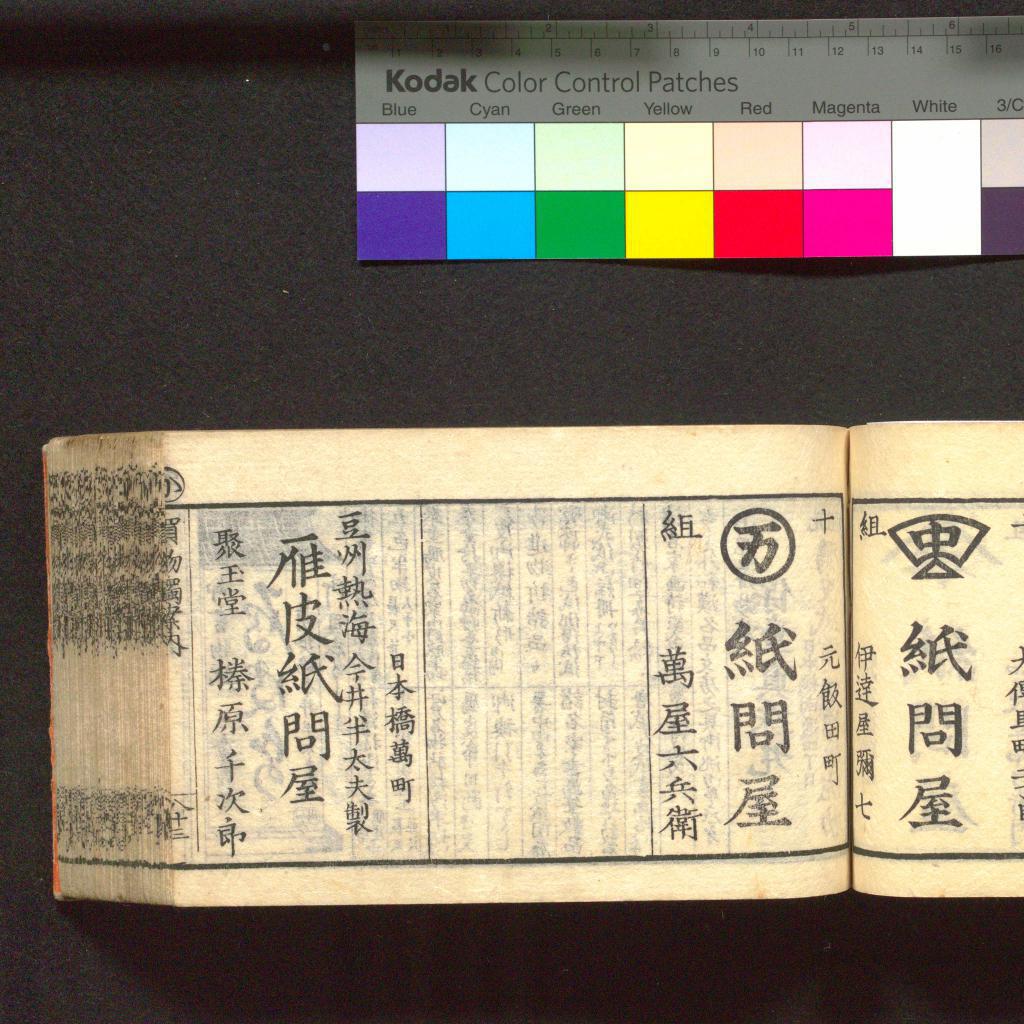 Kodak Color Control Patches
Blue Cyan Green Yellow Red Magenta White 3/C
1 2 3 4 5 6
1 2 3 4 5 6 7 8 9 10 11 12 13 14 15 16
紙問屋
組
伊達屋彌七
十
元飯田町
万
紙問屋
組
萬屋六兵衛
日本橋萬町
豆州熱海 今井半太夫製
雁皮紙問屋
聚玉堂
榛原千次郎
買物獨案内